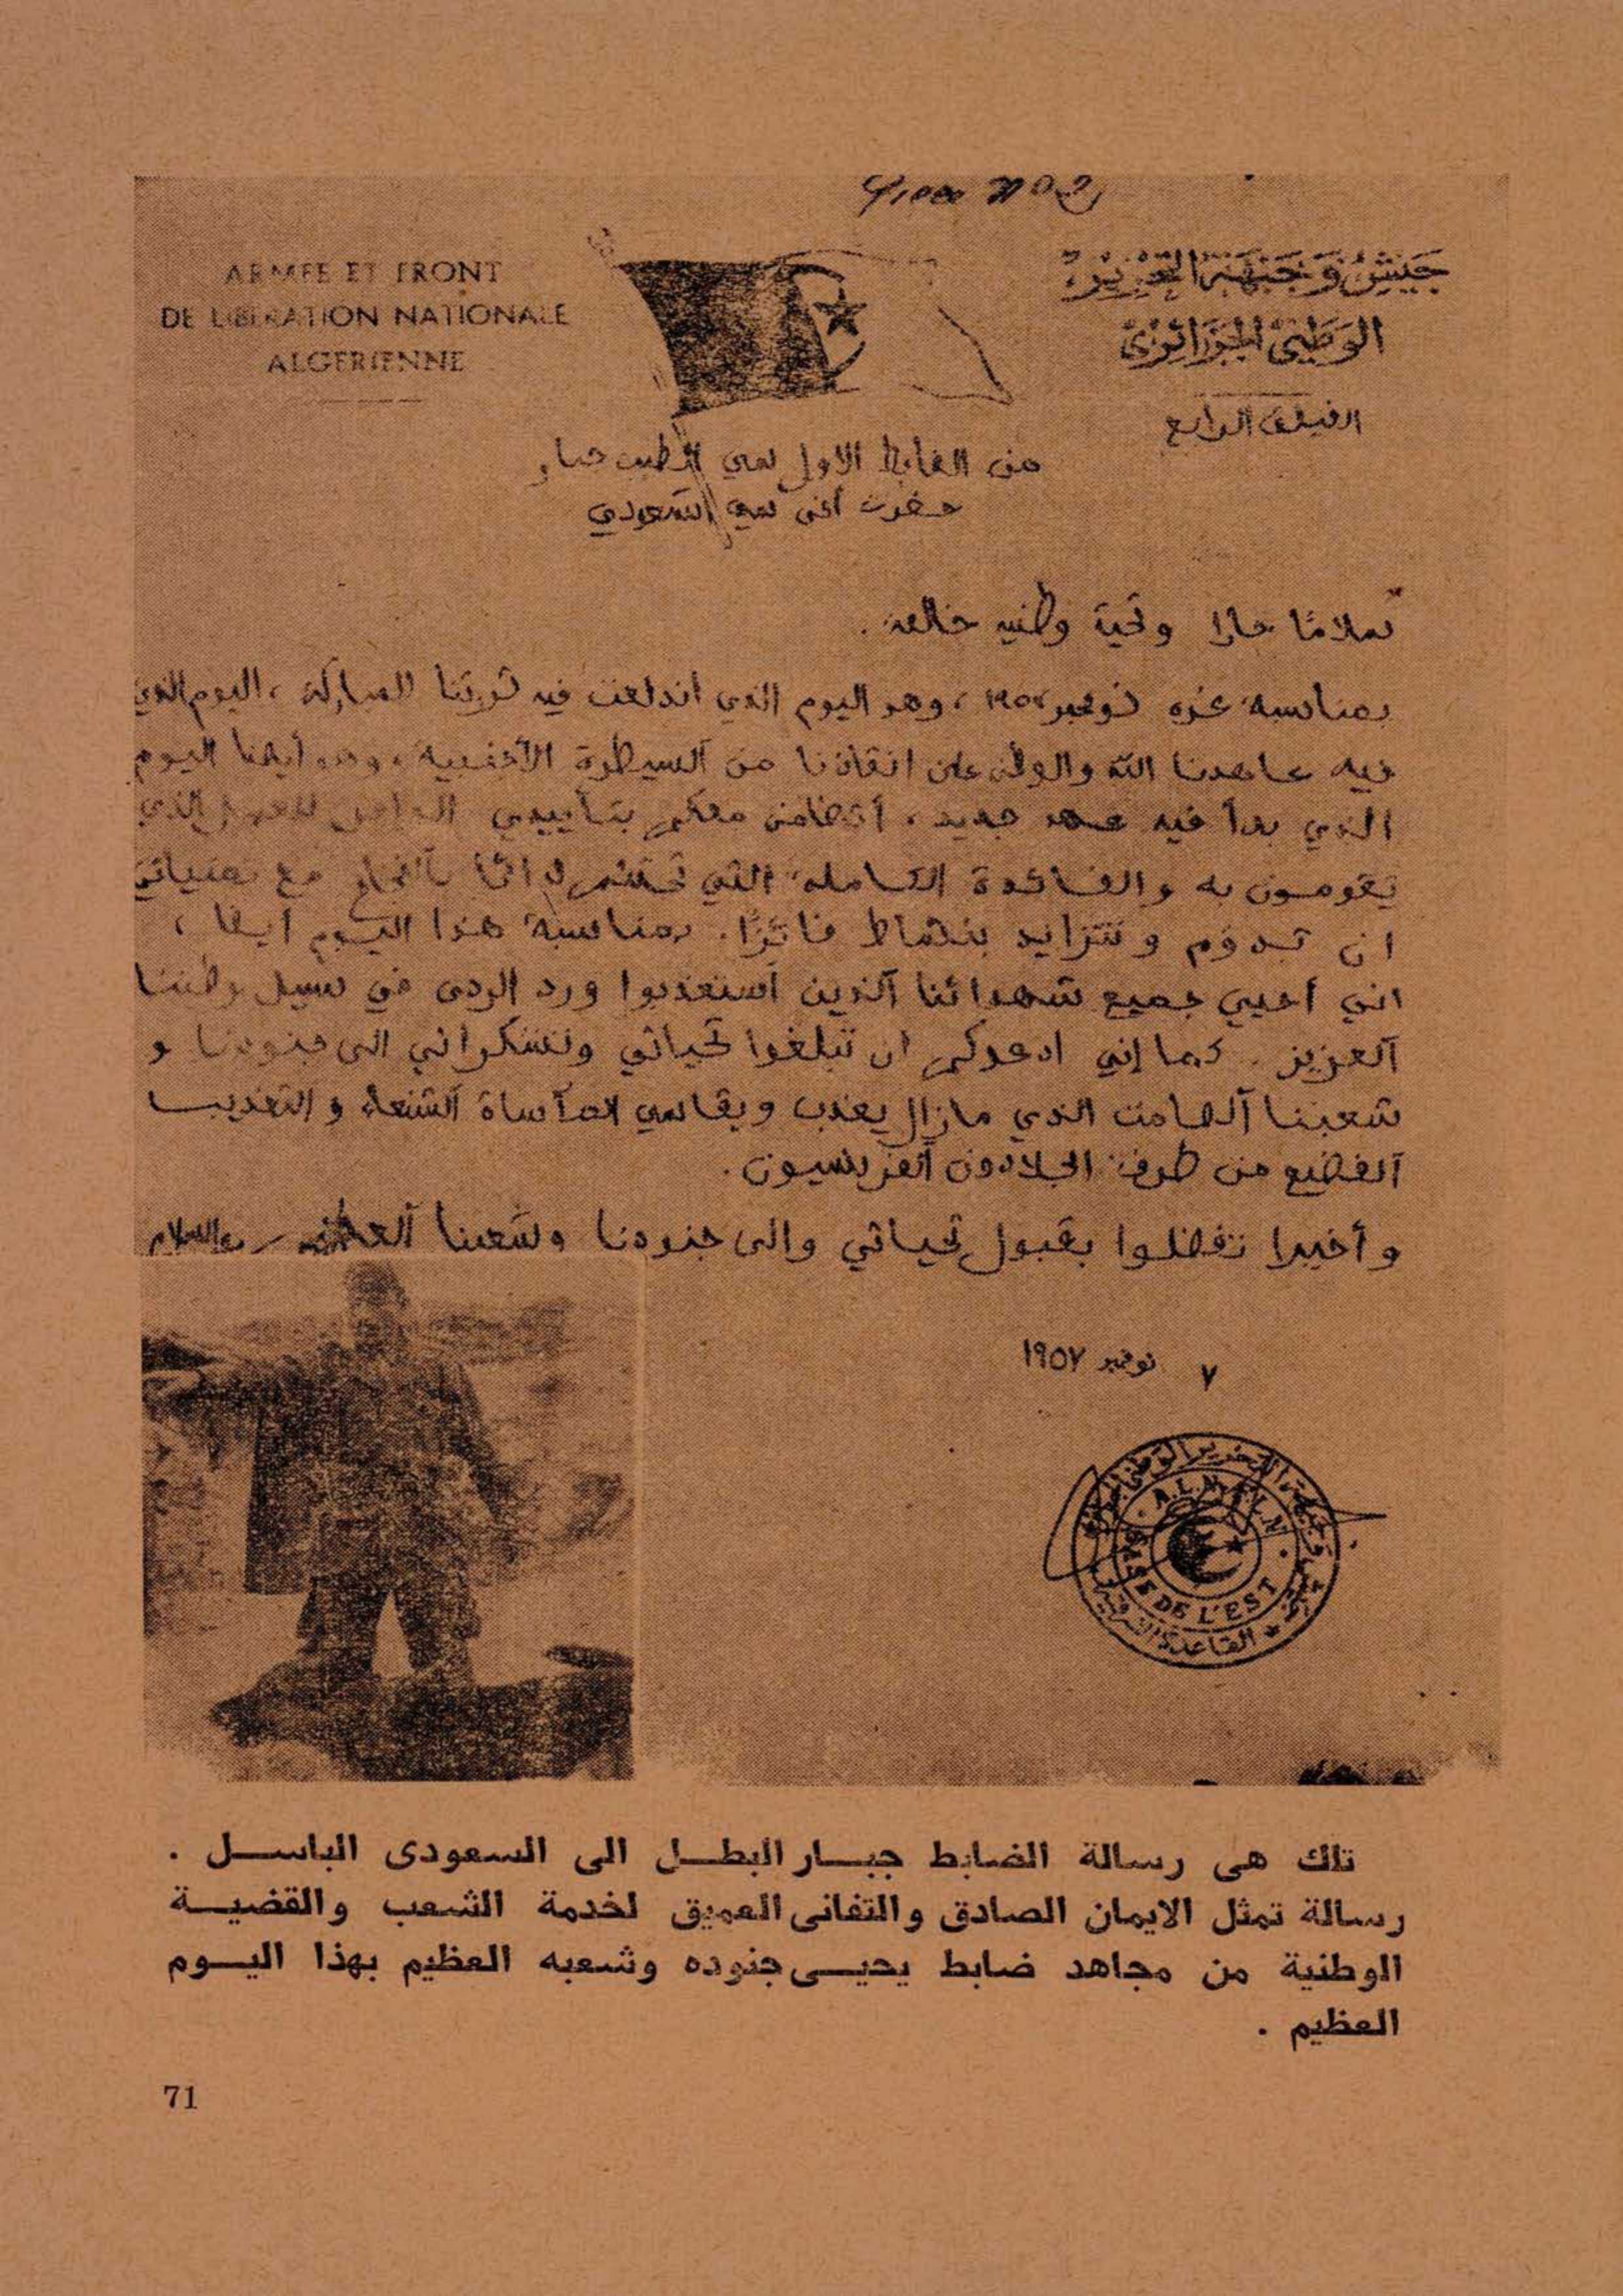 Piece N° 2
ARMEE ET FRONT
DE LIBERATION NATIONALE
ALGERIENNE
جَيْشُ وَجَبْهَةُ التَّحْرِيْرِ
الوَطَنِي الجَزَائِرِي
الفيلق الرابع
من الضابط الاول سي الطيب جبار
حضرت أخي سي السعودي
سلامًا حارا وتحية وطنيه خالصة .
بمناسبة غزه نوفمبر ١٩٥٤ ، وهو اليوم الذي أندلعت فيه ثورتنا المباركة ، اليوم الذي
فيه عاهدنا الله والوطن على انقاذنا من السيطرة الأجنبية ، وهو أيضا اليوم
الذي بدأ فيه عهد جديد ، أتضامن معكم بتأييدي للعمل الذي
تقومون به والفائدة الكاملة التي تختتم دائما بالنجاح مع تمنياتي
ان تدوم وتتزايد بنشاط . بمناسبة هذا اليوم أيضا ،
انني أحيي جميع شهدائنا الذين استعذبوا ورد الردى في سبيل وطننا
العزيز . كما إني ادعوكم ان تبلغوا تحياتي وتشكراتي الى جنودنا و
شعبنا الصامت الذي مازال يعذب ويقاسي المآساة الشنعة و التعذيب
الفضيع من طرف الجلادون الفرنسيون .
و أخيرا تفضلوا بقبول تحياتي والى جنودنا وشعبنا العظيم والسلام
٧ نوفمبر ١٩٥٧
A.L.N. F.L.N.
BASE DE L'EST
القاعدة الشرقية
تلك هى رسالة الضابط جبـــار البطـــل الى السعودى الباســـل .
رسالة تمثل الايمان الصادق والتفانى العميق لخدمة الشعب والقضيـــة
الوطنية من مجاهد ضابط يحيـــى جنوده وشعبه العظيم بهذا اليـــوم
العظيم .
71